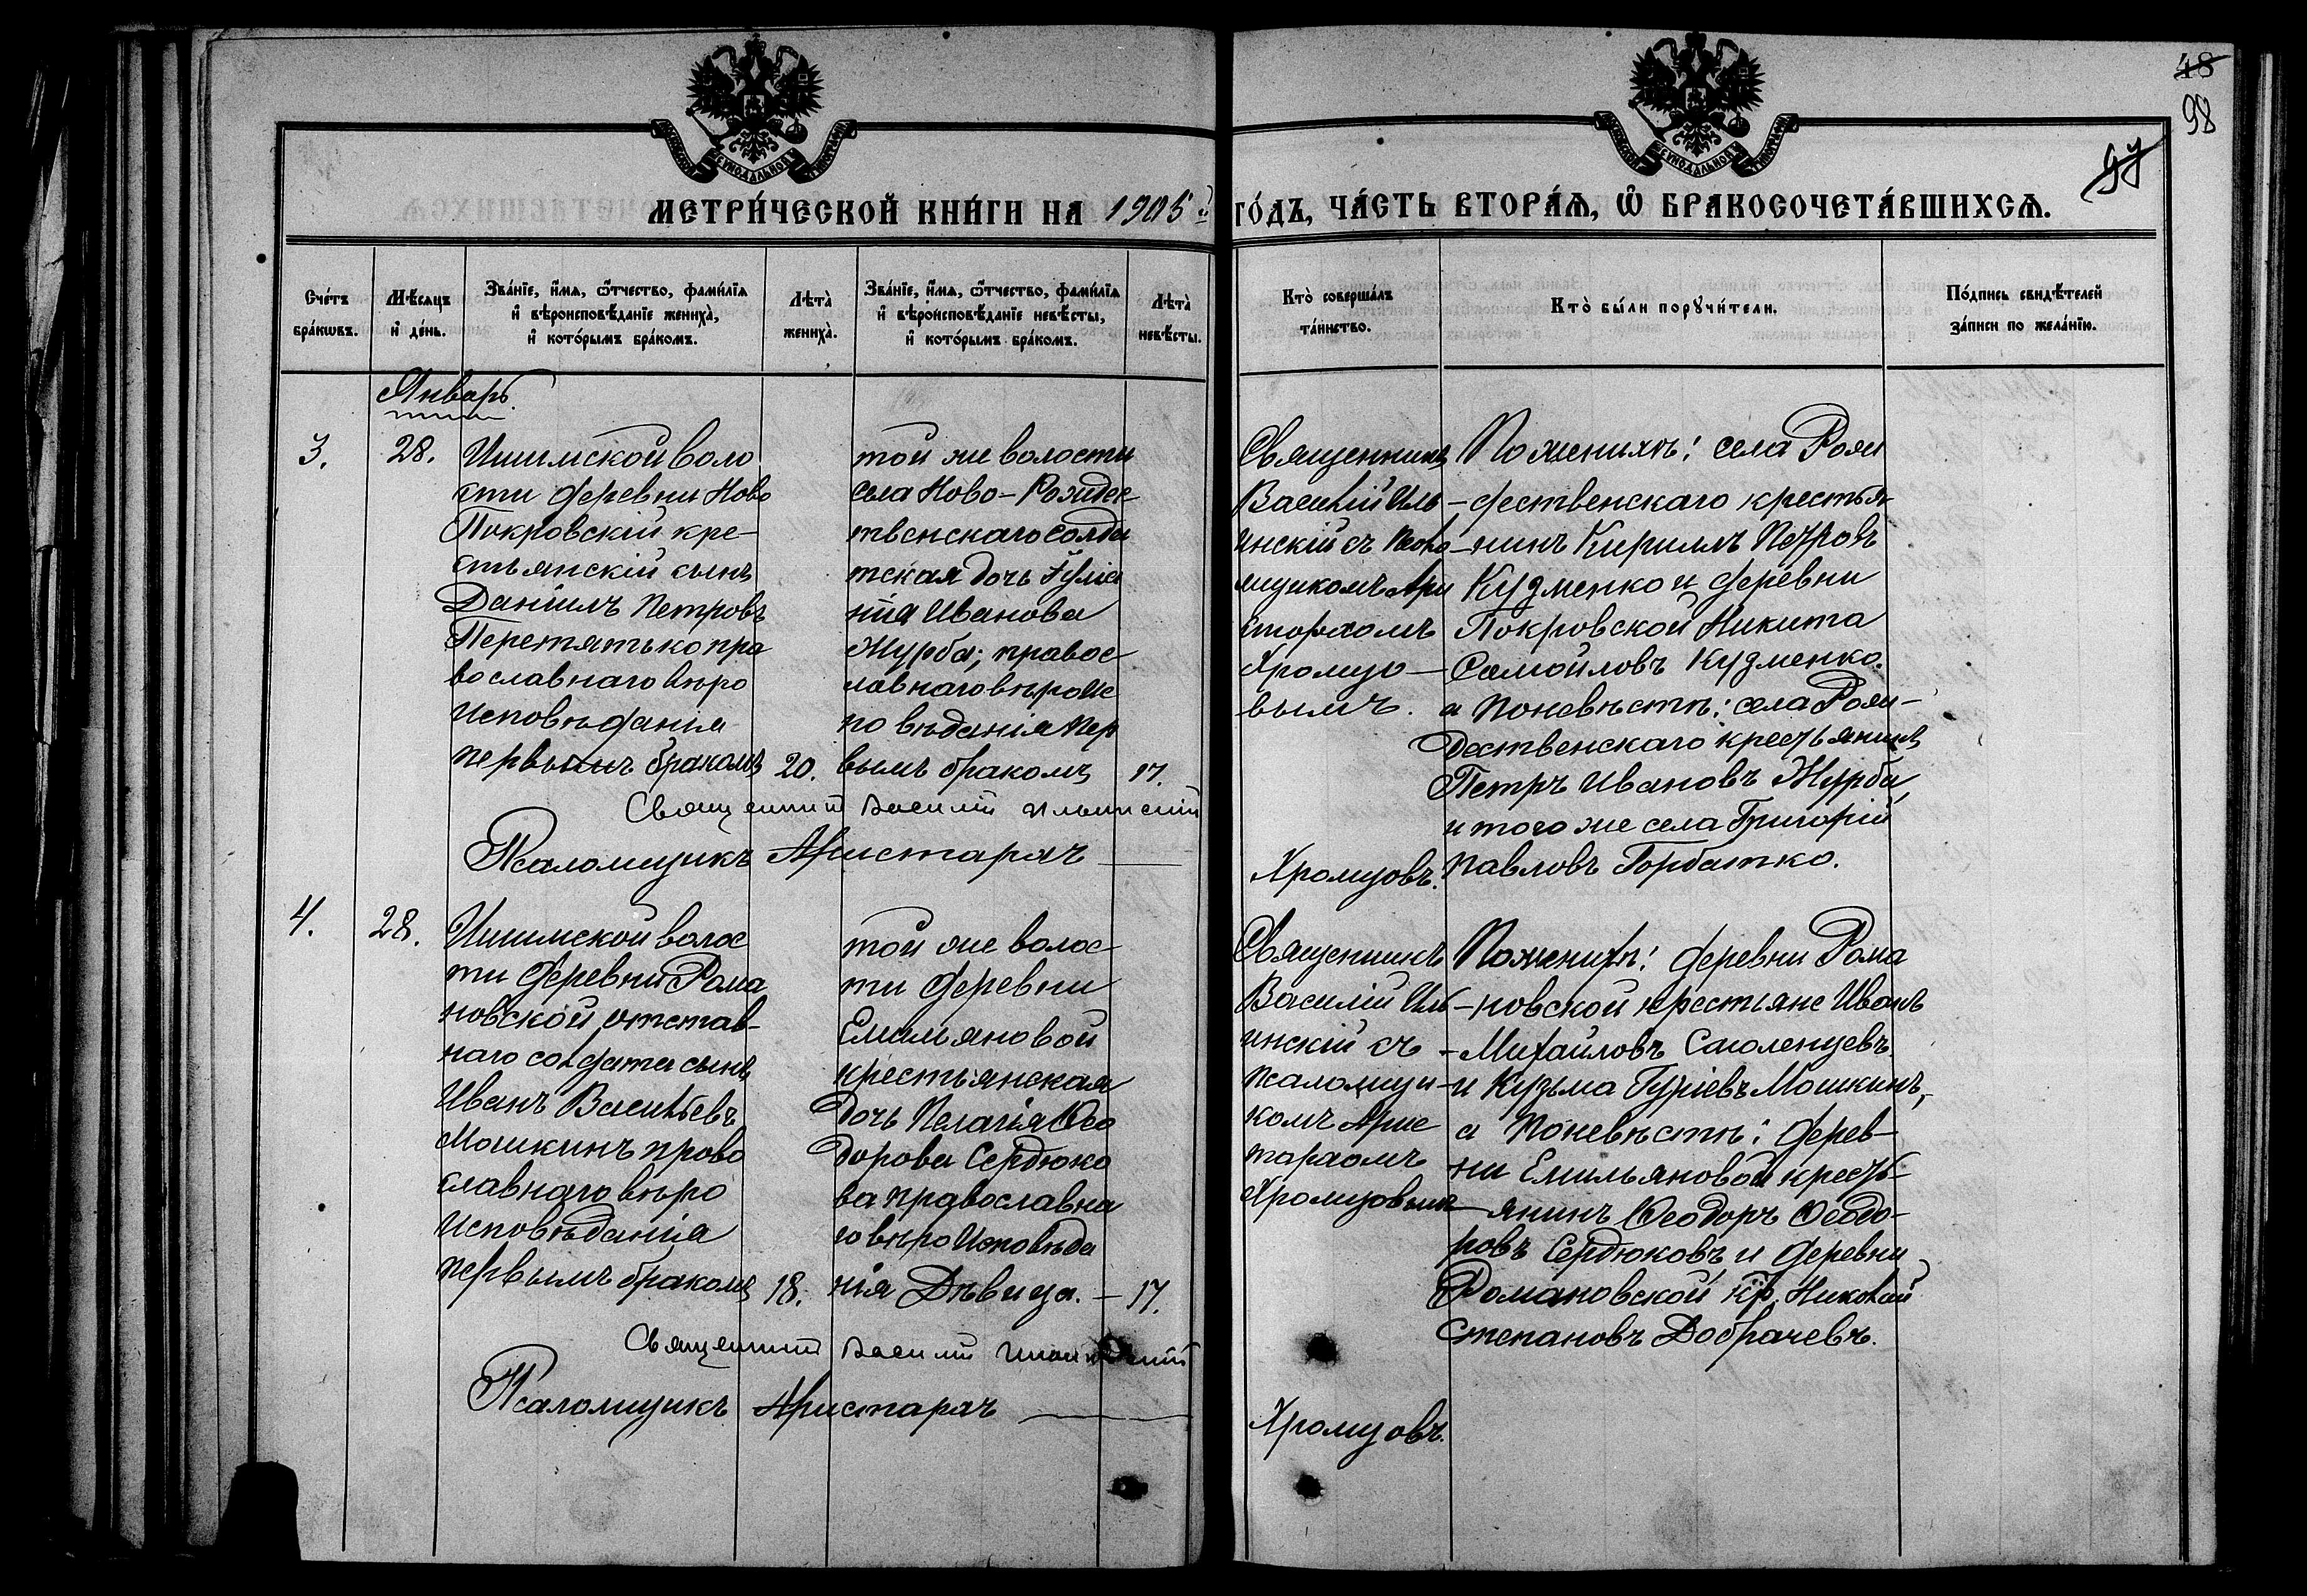 48
98
97
МЕТРИ́ЧЕСКОЙ КНИ́ГИ НА 1905й ГО́ДЪ, ЧА́СТЬ ВТОРА́Ѧ, Ѡ҆ БРАКОСОЧЕТА́ВШИХСѦ.
Сче́тъ бра́кѡвъ.
Мѣ́сяцъ и҆ де́нь.
Зва́нїе, и҆́мѧ, ѻ҆́тчество, фами́лїѧ и҆ вѣроисповѣ́данїе жениха̀, и҆ кото́рымъ бра́комъ.
Лѣта̀ жениха̀.
Зва́нїе, и҆́мѧ, ѻ҆́тчество, фами́лїѧ и҆ вѣроисповѣ́данїе невѣ́сты, и҆ кото́рымъ бра́комъ.
Лѣта̀ невѣ́сты.
Кто̀ соверша́лъ та́инство.
Кто̀ бы́ли порꙋчи́тели.
По́дпись свидѣ́телей за́писи по жела́нїю.
Январь.
3.
28.
Ишимской воло
сти деревни Ново
Покровскій кре-
стьянскій сынъ
Даніилъ Петровъ
Перетятько пра
вославнаго вѣро
исповѣданія
первымъ бракомъ
20.
той же волости
села Ново-Рождес
твенскаго солда
тская дочь Іуліа
нія Иванова
Журба; правос
лавнаго вѣроис
повѣданія пер
вымъ бракомъ
17.
Священникъ
Василій Иль-
инскій съ псало
мщикомъ Ари
стархомъ
Хромцо-
вымъ.
По женихѣ: села Рож
дественскаго крестья
нинъ Кириллъ Петровъ
Кузменко и деревни
Покровской Никита
Самойловъ Кузменко.
а По невѣстѣ: села Рож-
дественскаго крестьянинъ
Петръ Ивановъ Журба,
и того же села Григорій
Павловъ Горбатко.
Священникъ Василій Ильинскій
Псаломщикъ Аристархъ Хромцовъ.
4.
28.
Ишимской волос
ти деревни Рома
новской отстав-
наго солдата сынъ
Иванъ Васильевъ
Мошкинъ право
славнаго вѣро
исповѣданія
первымъ бракомъ
18.
той же волос-
ти деревни
Емильяновой
крестьянская
дочь Пелагія Ѳео
дорова Сердюко
ва православна
го вѣроисповѣда
нія Дѣвица.
17.
Священникъ
Василій Иль-
инскій съ
псаломщи-
комъ Арис
тархомъ
Хромцовымъ
По женихѣ: деревни Рома
новской крестьяне Иванъ
Михайловъ Смоленцевъ
и Кузьма Гуріевъ Мошкинъ,
а По невѣстѣ: дерев-
ни Емильяновой кресть-
янинъ Ѳеодоръ Ѳеодо-
ровъ Сердюковъ и деревни
Романовской кр. Николай
Степановъ Добрачевъ.
Священникъ Василій Ильинскій
Псаломщикъ Аристархъ Хромцовъ.